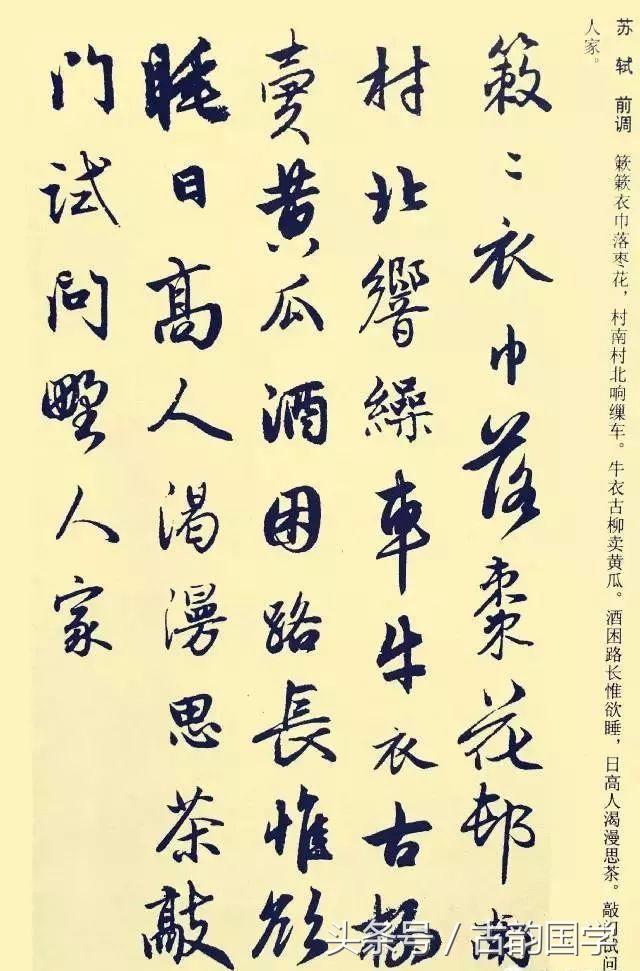 苏轼 前调 簌簌衣巾落枣花，村南村北响缫车。牛衣古柳卖黄瓜。酒困路长惟欲睡，日高人渴漫思茶。敲门试问
人家。
簌〻衣巾落棗花邨南
村北響繰車牛衣古
賣黄瓜酒困路長惟欲
睡日高人渴漫思茶敲
門試問野人家
头条号 / 古韵国学